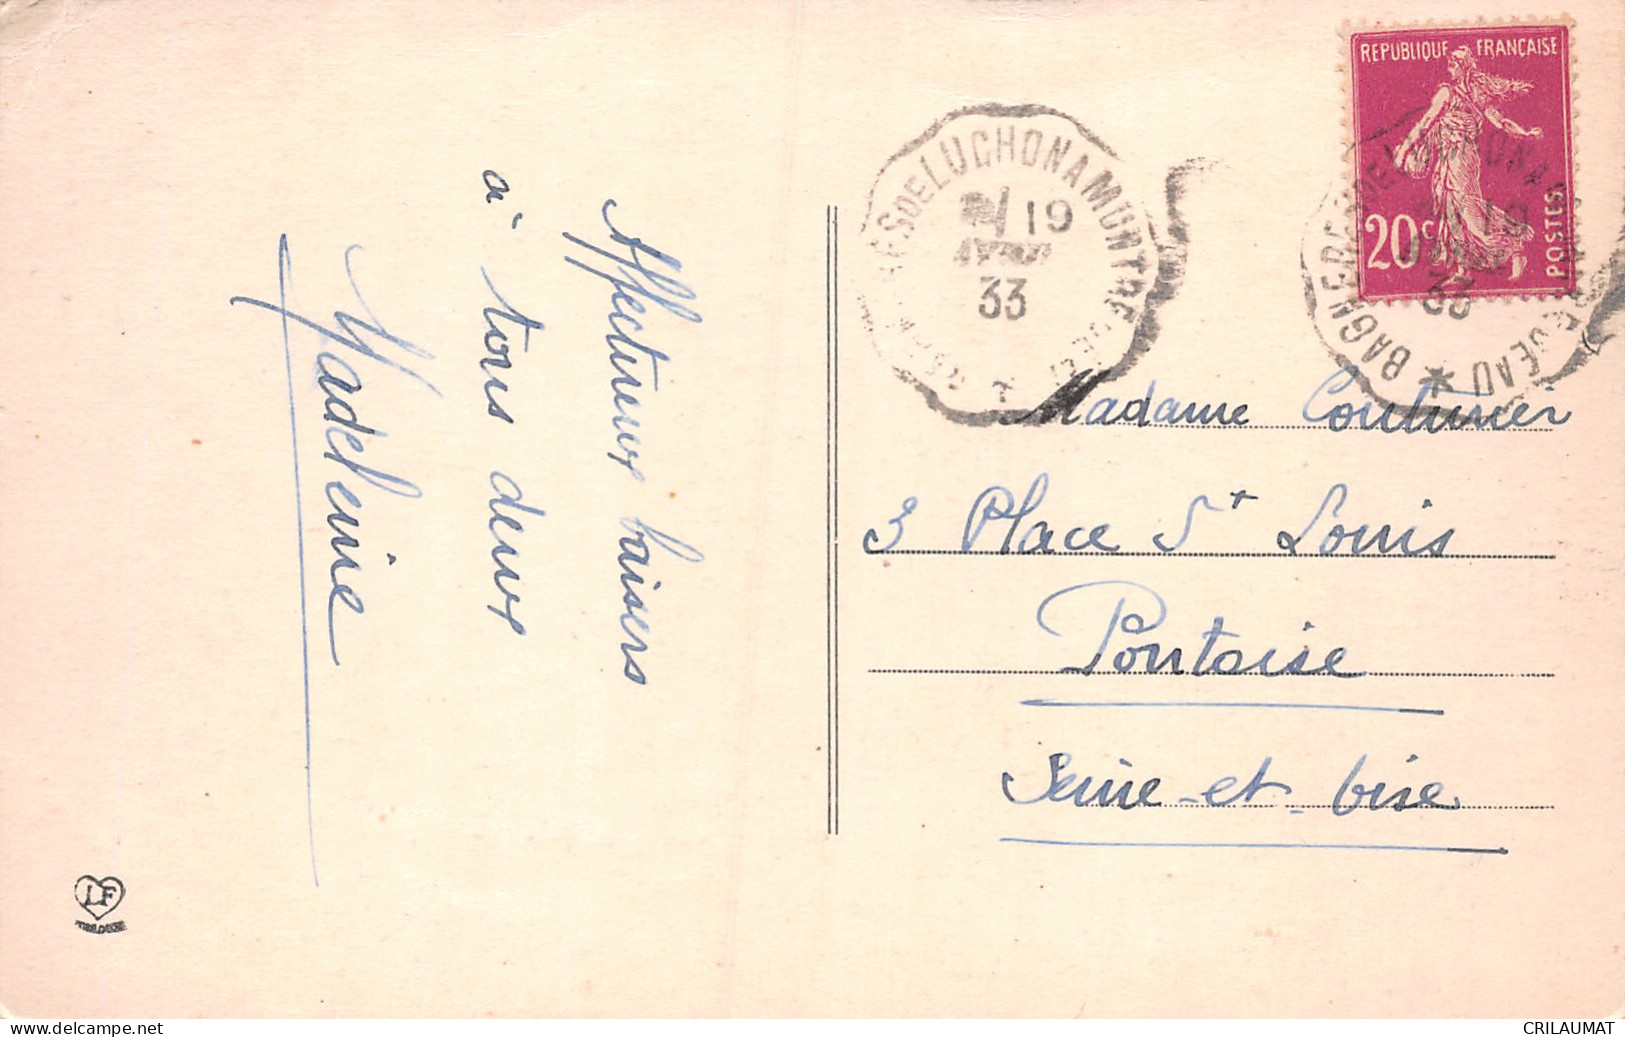 Affectueux baisers
à tous deux
Madeleine
LF
REPUBLIQUE FRANÇAISE
20c
POSTES
DE LUCHON A MONTREJEAU
19
33
BAGNERES DE LUCHON A MONTREJEAU
19
33
Madame Couturier
3 Place St Louis
Pontoise
Seine-et-Oise
CRILAUMAT